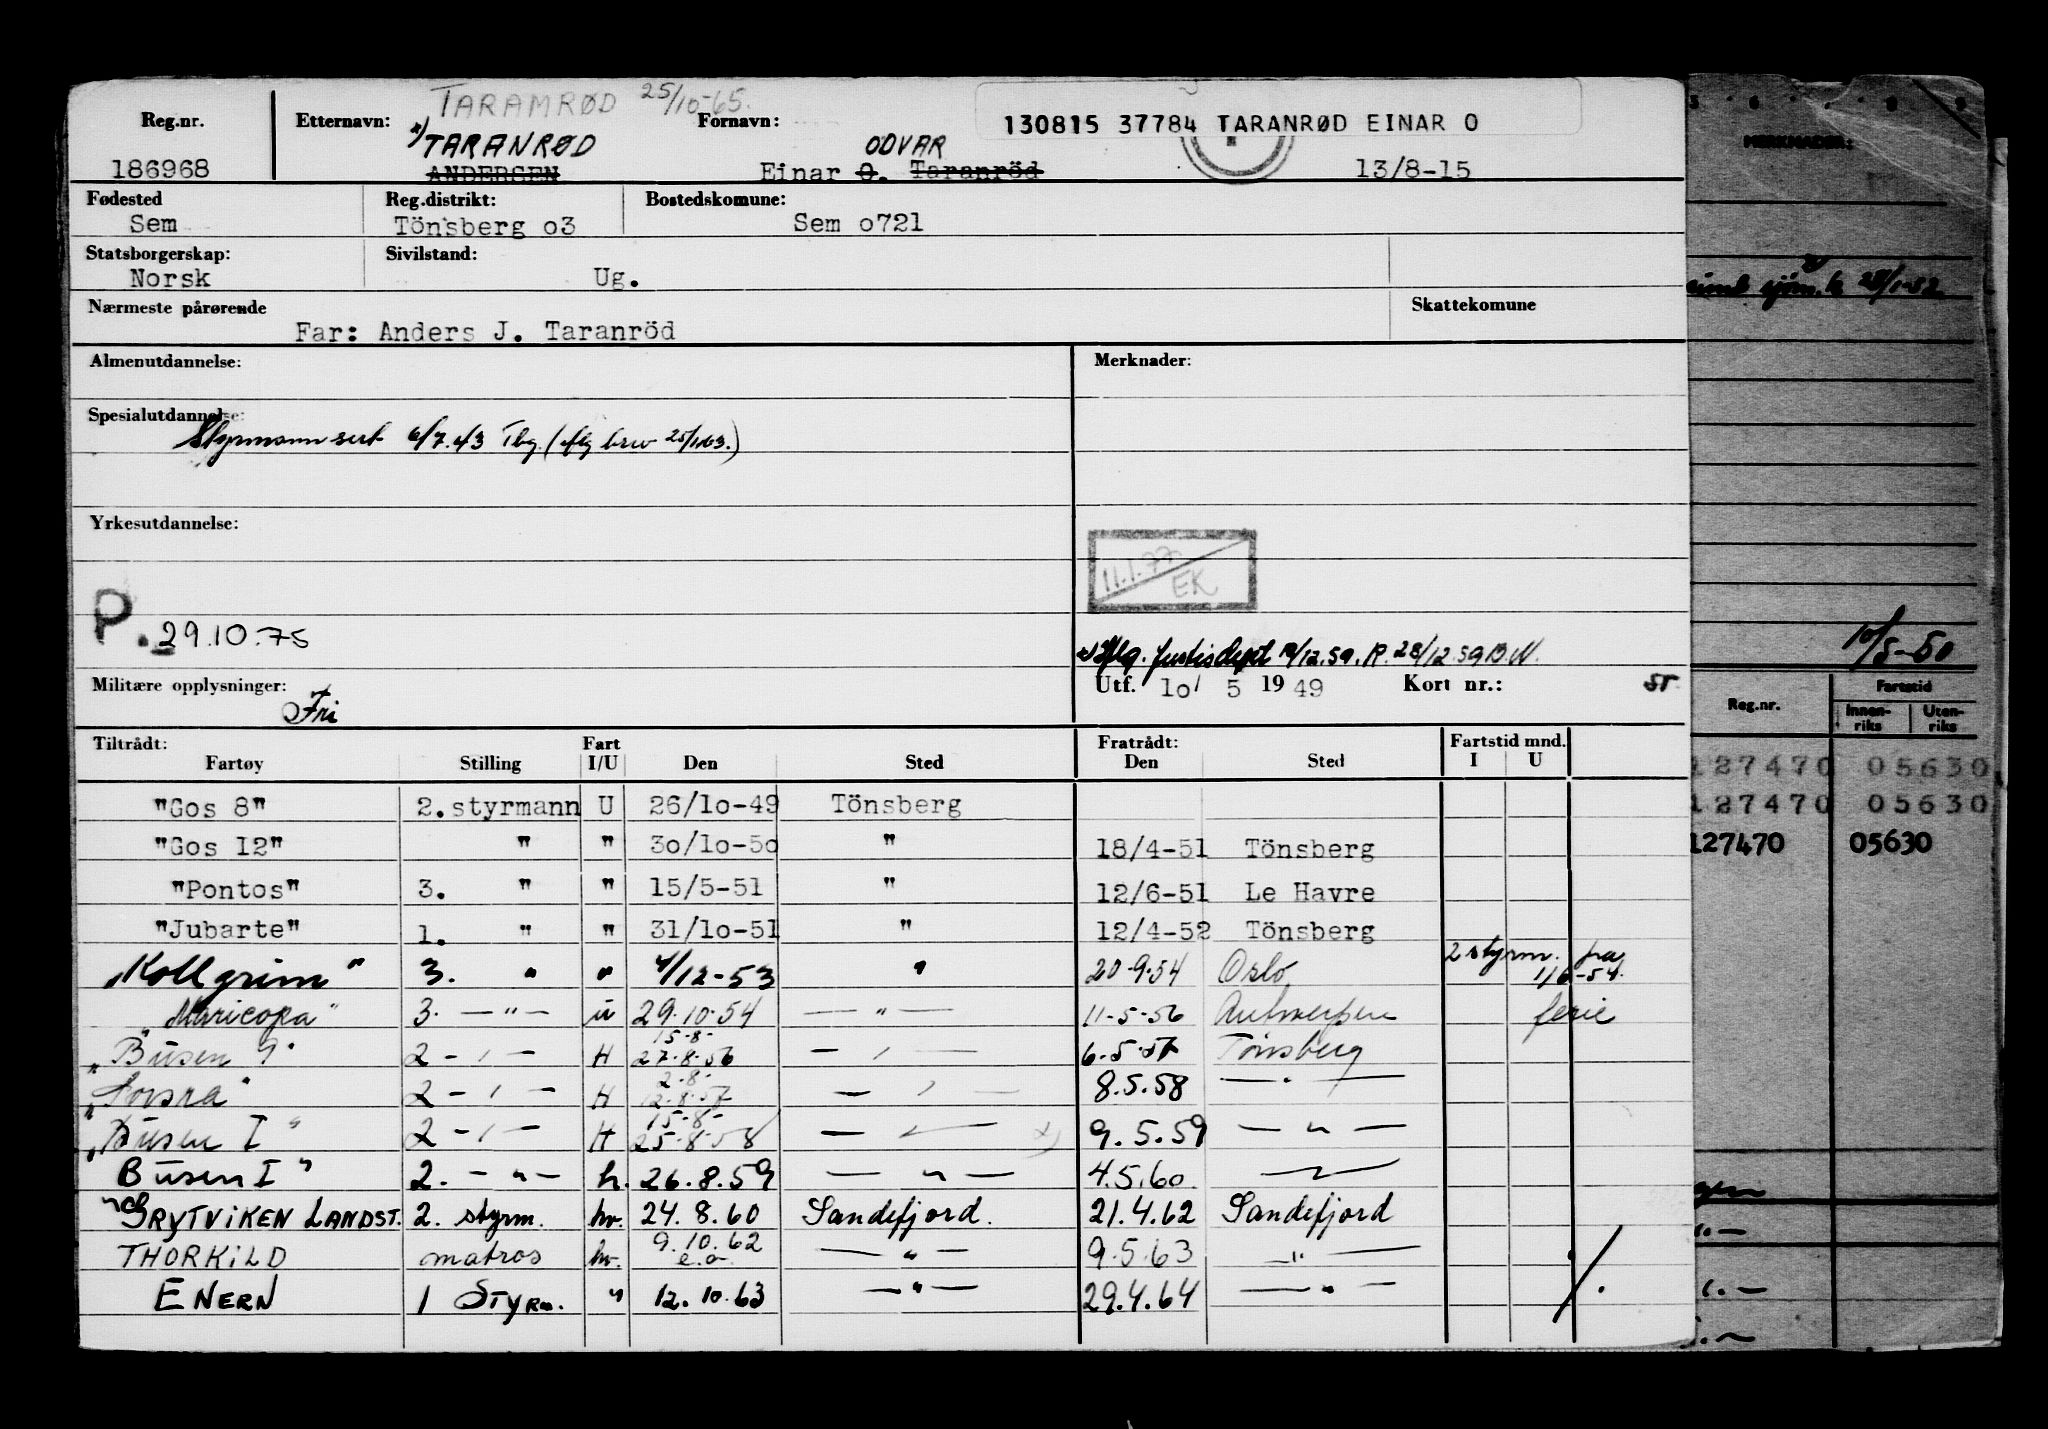 TARAMRØD 25/10-65.
Reg.nr. Etternavn: Fornavn: 130815 37784 TARANRØD EINAR O
x) TARANRØD ODVAR
186968 ANDERSEN Einar O. Taranröd 13/8-15
Fødested Reg.distrikt: Bostedskomune:
Sem Tönsberg o3 Sem o721
Statsborgerskap: Sivilstand:
Norsk Ug.
Nærmeste pårørende Skattekomune
Far: Anders J. Taranröd
Almenutdannelse: Merknader:
Spesialutdannelse:
Styrmann sert 6/7.43 Tbg. (iflg brev 25/1.63.)
Yrkesutdannelse:
11.1.77 EK
P. 29.10.75
x) Iflg. Justisdept 12/12.59. R. 28/12.59 B.N.
Militære opplysninger: Utf. 1o/ 5 19 49 Kort nr.: st
Fri
Tiltrådt: Fart Fratrådt: Fartstid mnd.
Fartøy Stilling I/U Den Sted Den Sted I U
"Gos 8" 2. styrmann U 26/1o-49 Tönsberg
"Gos I2" " " 3o/1o-5o " 18/4-51 Tönsberg
"Pontos" 3. " " 15/5-51 " 12/6-51 Le Havre
"Jubarte" 1. " " 31/1o-51 " 12/4-52 Tönsberg
"Kollgrim" 3. " " 4/12-53 " 20-9-54 Oslo 2 styrm. fra 1/6-54.
"Maricopa" 3. — " — u 29.10.54 — " — 11-5-56 Antwerpen ferie
15-8-
"Busen 9" 2 — " — H 27-8-56 — " — 6-5-57 Tönsberg
2-8-
"Sovsra" 2 — " — H 12-8-57 — " — 8.5.58 — " —
15-8-
"Busen I" 2 — " — H 25-8-58 — " — x) 9.5.59 — " —
Busen I" 2. — " — h. 26.8.59 — " — 4.5.60. — " —
"GRYTVIKEN LANDST. 2. styrm. hv. 24.8.60 Sandefjord. 21.4.62 Sandefjord
THORKILD matros hv. 9.10.62 e.a. — " — 9.5.63 — " —
ENERN 1 STYRM. " 12.10.63 — " — 29.4.64 — " —
MERKNADER:
28/1-52
10/5-50
Reg.nr. Fartstid
Innenriks Utenriks
127470 05630
127470 05630
127470 05630